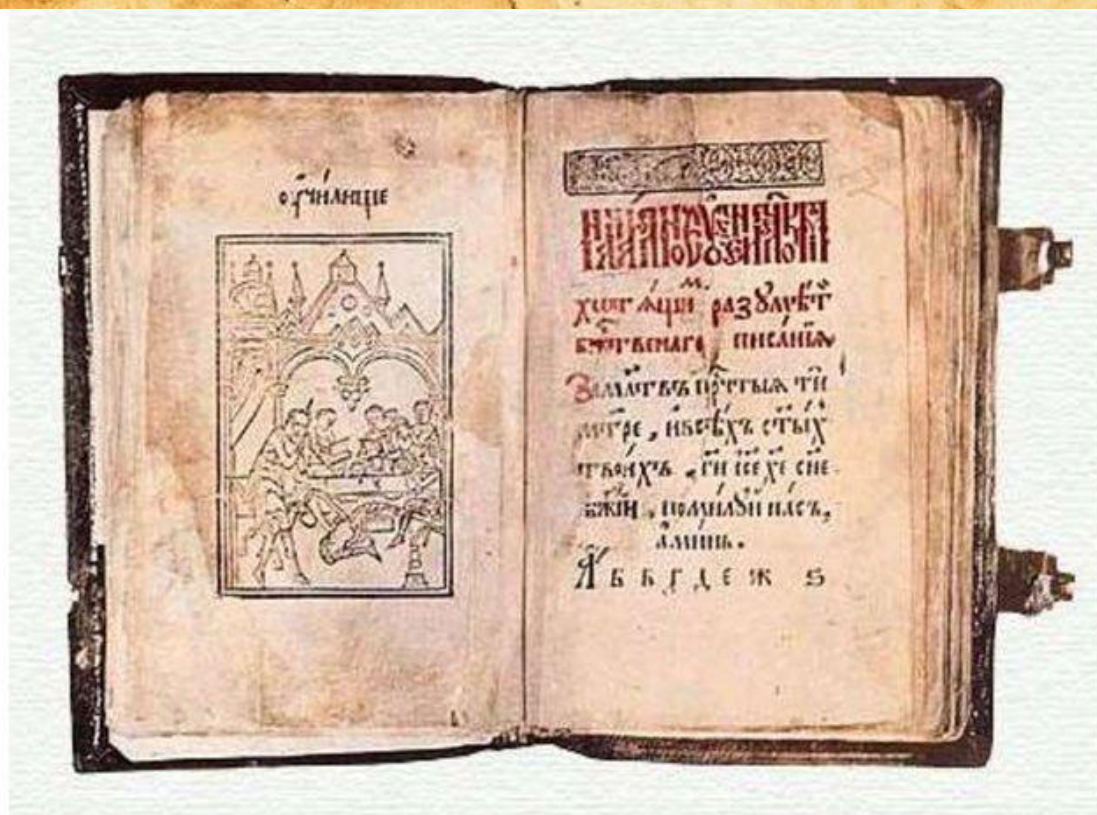 оучи́лище
хотѧ́щим разꙋмѣ́т
бжⷭ҇твенаго писа́нїѧ
За мл҃твъ прⷱ҇тыѧ ти
мт҃ре, и всѣ́хъ ст҃ы́хъ
твои́хъ, гⷭ҇и і҆се хе сн҃е
бж҃їи, поми́лꙋи на́съ,
а҆ми́нь.
А҆ б в г д е ж ѕ